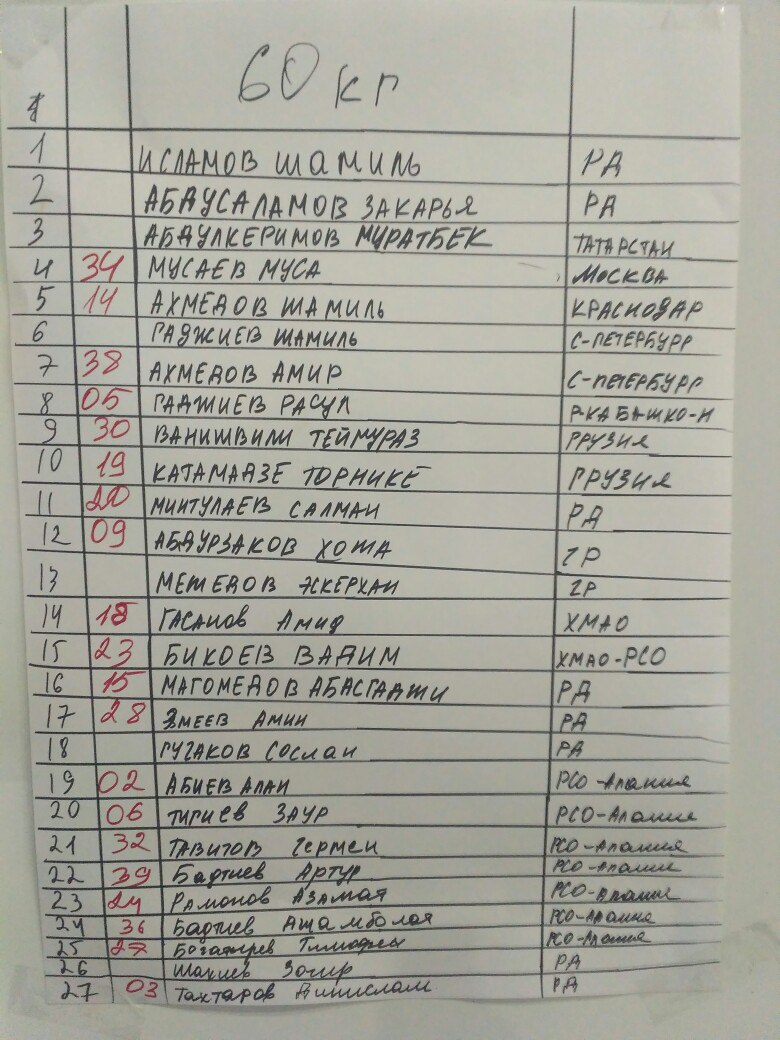 60 кг
#
1 ИСЛАМОВ ШАМИЛЬ РД
2 АБДУСАЛАМОВ ЗАКАРЬЯ РД
3 АБДУЛКЕРИМОВ МУРАТБЕК ТАТАРСТАН
4 34 МУСАЕВ МУСА МОСКВА
5 14 АХМЕДОВ ШАМИЛЬ КРАСНОДАР
6 ГАДЖИЕВ ШАМИЛЬ С-ПЕТЕРБУРГ
7 38 АХМЕДОВ АМИР С-ПЕТЕРБУРГ
8 05 ГАДЖИЕВ РАСУЛ Р-КА БАШКО-Н
9 30 ВАНИШВИЛИ ТЕЙМУРАЗ ГРУЗИЯ
10 19 КАТАМАДЗЕ ТОРНИКЕ ГРУЗИЯ
11 20 МИНТУЛАЕВ САЛМАН РД
12 09 АБДУРЗАКОВ ХОТА ЧР
13 МЕЖЕДОВ ЭСКЕРХАН ЧР
14 18 ГАСАНОВ Амид ХМАО
15 23 БИКОЕВ ВАДИМ ХМАО-РСО
16 15 МАГОМЕДОВ АБАСГАДЖИ РД
17 28 ЭМЕЕВ АМИН РД
18 ГУГАКОВ СОСЛАН РД
19 02 АБИЕВ АЛАН РСО-Алания
20 06 ТИГИЕВ ЗАУР РСО-Алания
21 32 ТАВИТОВ Гермен РСО-Алания
22 39 Бадтиев Артур РСО-Алания
23 24 Рамонов АЗАМАТ РСО-Алания
24 36 Бадтиев Ацамболат РСО-Алания
25 27 Богатырев Тимофей РСО-Алания
26 РД
27 03 Тахтаров Динислам РД